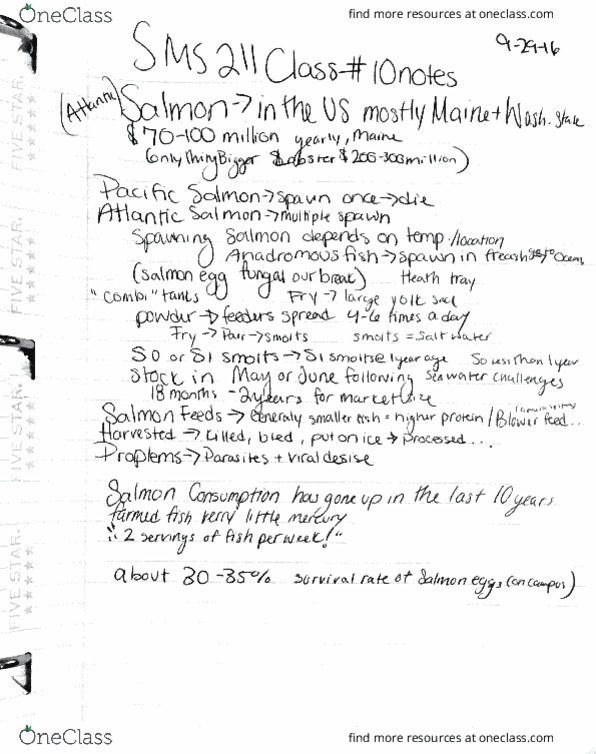 OneClass
find more resources at oneclass.com
9-29-16
SMS 211 Class #10 notes
(Atlantic) Salmon → in the US mostly Maine + Wash. state
$70-100 million yearly, Maine
(only thing Bigger lobster $ 200-300 million)
Pacific Salmon → spawn once → die
Atlantic Salmon → multiple spawn
Spawning Salmon depends on temp./location
Anadromous fish → spawn in to Ocean
(salmon egg fungal outbreak) Heath tray
"combi" tanks Fry → large yolk sac
powder → feeders spread 4-6 times a day
Fry → Parr → smolts smolts = Salt water
S0 or S1 smolts → S1 smoltse 1 year age S0 less than 1 year
Stock in May or June following sea water challenges
18 months - 2 years for market size
Salmon Feeds → generaly smaller fish = higher protein / Blower feed...
Harvested → killed, bled, put on ice → Processed...
Proplems → Parasites + viral desise
Salmon Consumption has gone up in the last 10 years
farmed fish very little mercury
"2 servings of fish per week!"
about 30-35% survival rate of Salmon eggs (on campus)
FIVE STAR.
FIVE STAR.
FIVE STAR.
FIVE STAR.
OneClass
find more resources at oneclass.com